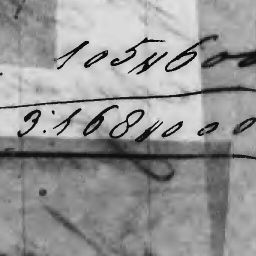 105$600
3:168$000